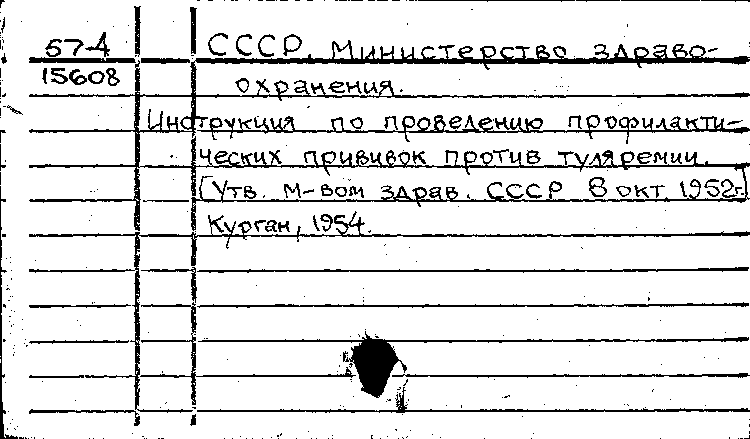 57-4
15608
СССР. Министерство здраво-
охранения.
Инструкция по проведению профилакти-
ческих прививок против туляремии.
[Утв. М-вом здрав. СССР 8 окт. 1952г.]
Курган, 1954.